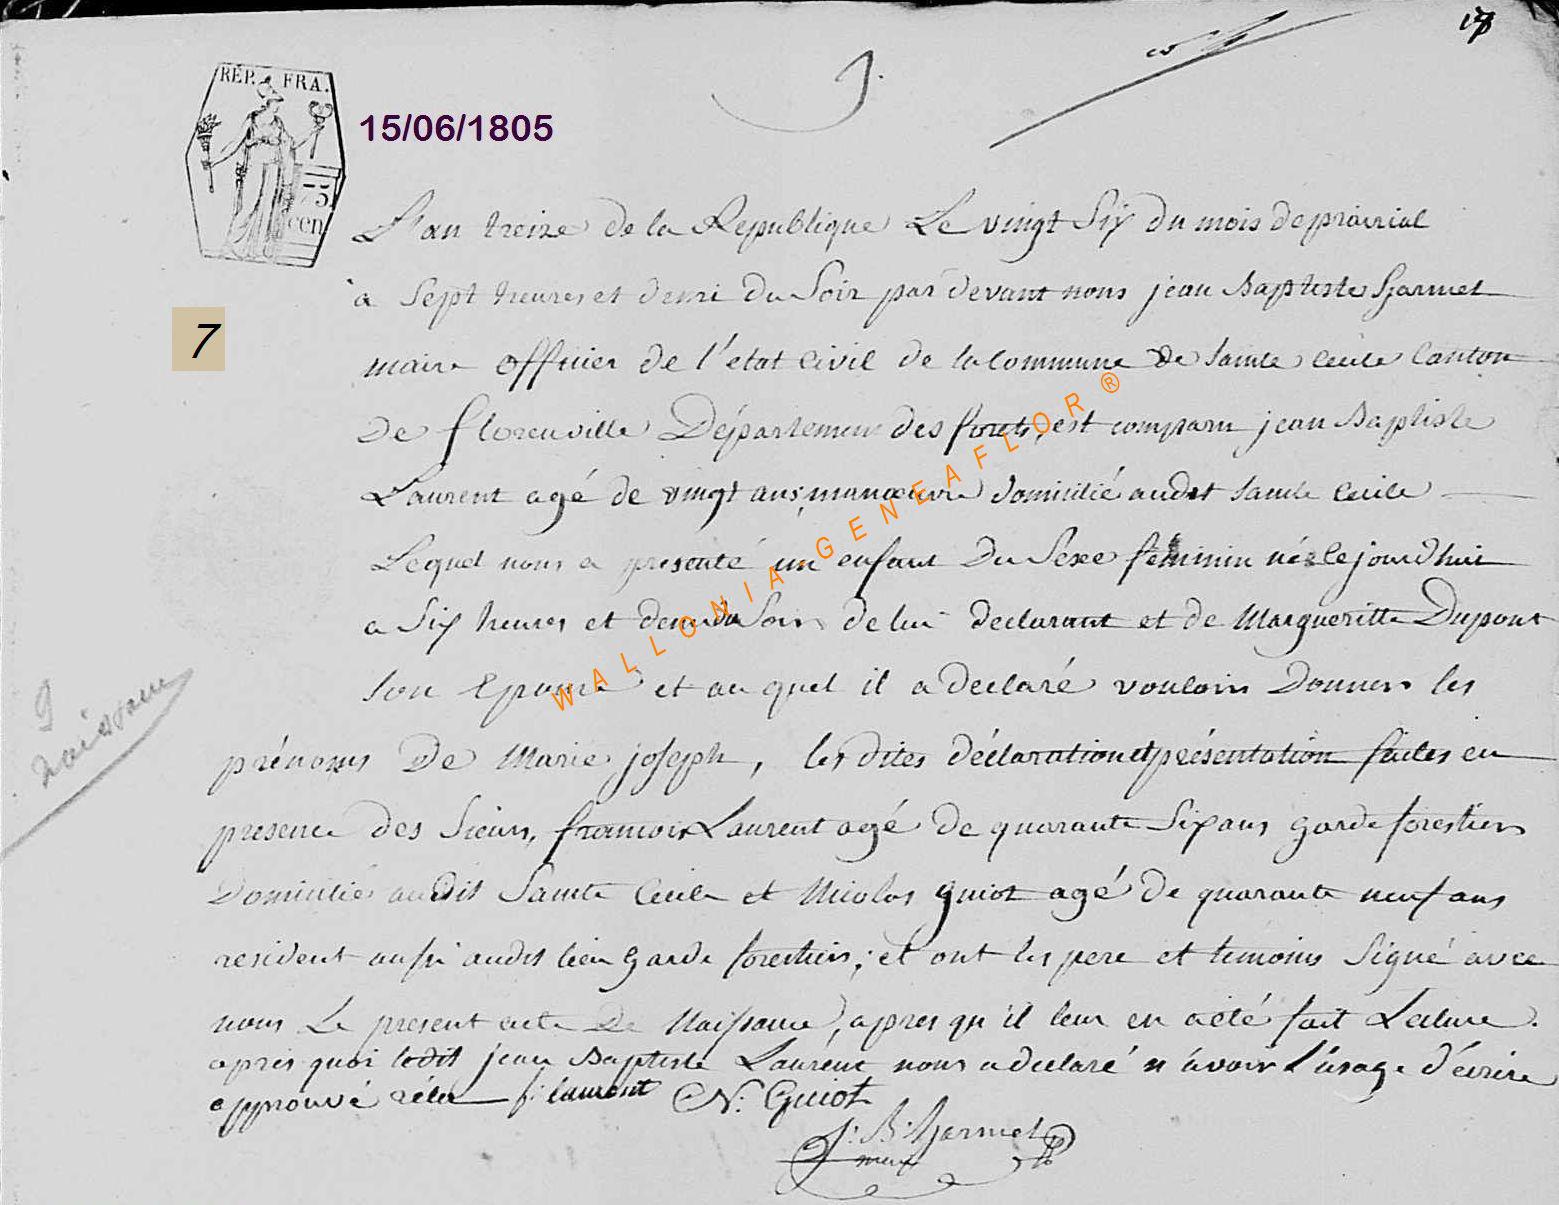 178
9.
RÉP. FRA.
75
cen
15/06/1805
7
L'an treize de la Republique Le vingt Six du mois de prairial
a Sept heures et demi du Soir par devant nous jean Baptiste
maire officier de l'état Civil de la Commune de Sainte Cecile Canton
de florenville Département des forets, est comparu jean Baptiste
Laurent agé de vingt ans, manœuvre domicilié audit Sainte Cecile
Lequel nous a presenté un enfant du Sexe féminin née le jourd'hui
a Six heures et demi du Soir de lui declarant et de Margueritte Dupont
Son Epouse et au quel il a declaré vouloir Donner les
prénoms De Marie joseph, les dites déclaration et présentation faites en
presence des Sieurs, francois Laurent agé de quarante Six ans garde forestier
Domicilié audit Sainte Cecile et Nicolas guiot agé de quarante neuf ans
resident aussi audit lieu garde forestier; et ont les pere et temoins Signé avec
nous Le present acte De Naissance, apres qu'il leur en a été fait Lecture.
apres quoi ledit jean Baptiste Laurent nous a declaré n'avoir l'usage d'écrire
approuvé f: laurent N: Guiot
J: B:
9
Naissance
WALLONIA GENEAFLOR ®